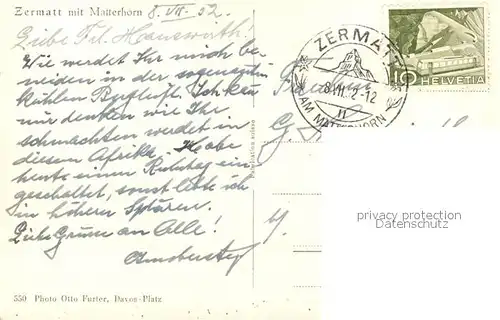 Zermatt mit Matterhorn 8. VII. 52
Liebe Frl. Hauswirth.
Wie werdet Ihr mich be-
neiden in der sogenannten
kühlen Bergluft. Ich kann
nur denken wie Ihr
schmachten werdet in
diesem Afrika. Habe
heute einen Ruhetag ein-
geschaltet, sonst lebe ich
in höhern Sphären.
Liebe Grüsse an Alle!
ZERMATT
8.VII. 2-12
AM MATTERHORN
10 HELVETIA
G.
privacy protection
Datenschutz
550 Photo Otto Furter, Davos-Platz